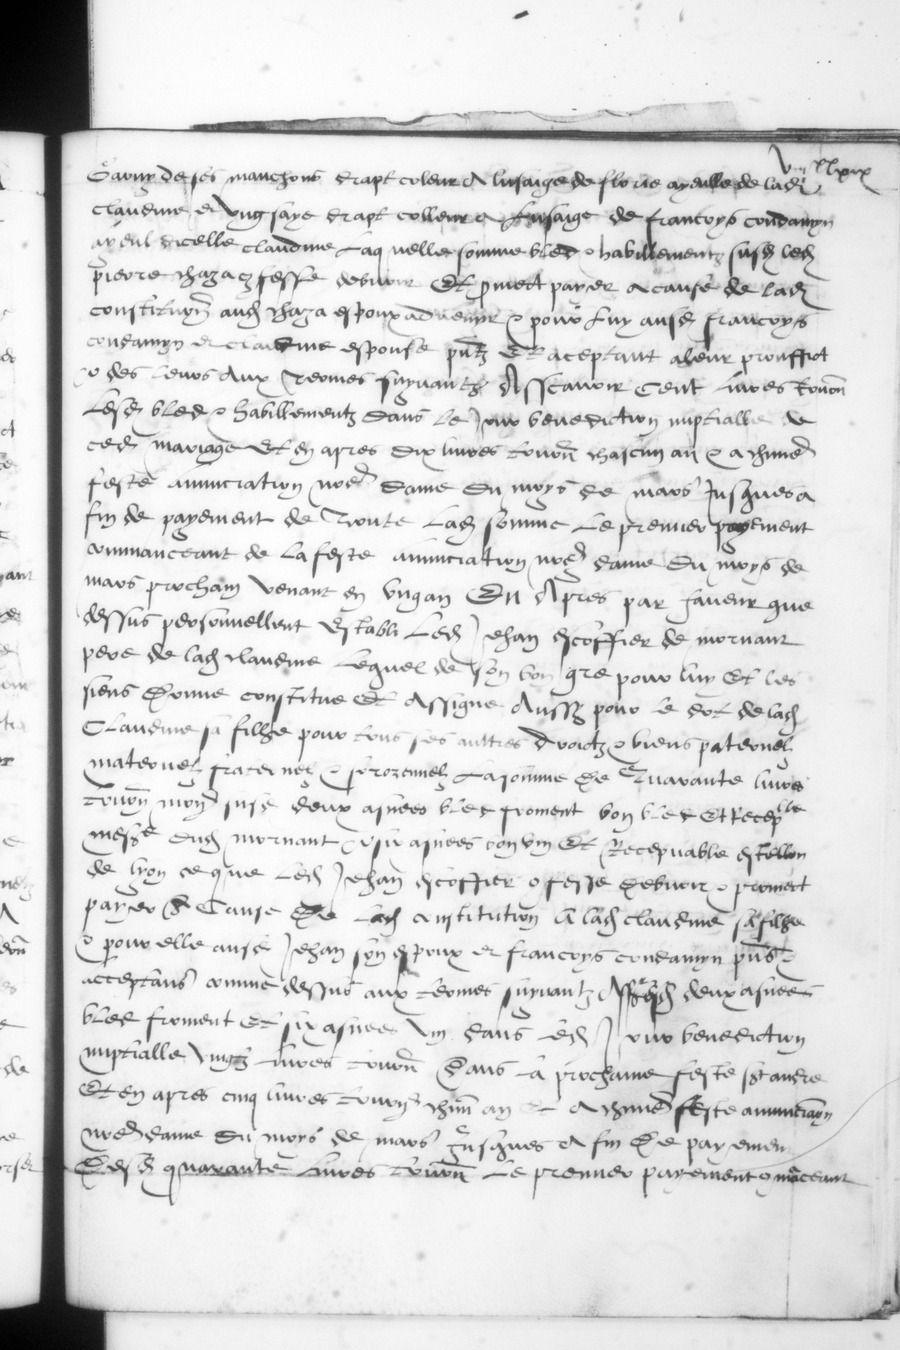 garny de ses manchons drapt coleur a lusaige de florie ayeulle de lad
claudine et ung saye drapt colleur a lusaige de francoys condamyn
ayeul dicelle claudine laquelle somme bled & habillementz susd led
pierre chaza confesse debvoir Et promect payer a cause de lad
constitution aud chaza espoux advenir & pour luy ausd francoys
condamyn et claudine espouse pntz Et aceptant a leur prouffict
& des leurs aux termes suyvantz Asscavoir Cent livres tourn
lesd bled & habillementz dans le jour benediction nuptialle de
ced mariage Et en apres dix livres tourn chascun an & a chune
feste annunciation nre dame du moys de mars jusques a
fin de payement de toute lad somme le premier payement
commanceant de la feste annunciation nre dame du moys de
mars prochain venant en ung an En Apres par faveur que
dessus personnellement establi led Jehan escoffier de mornant
pere de lad claudine lequel de son bon gre pour luy Et les
siens donne constitue Et Assigne Aussy pour le dot de lad
Claudine sa filhe pour tous ses aultres droictz & biens paternelz
maternelz fraternelz & sororzemelz La somme de Quarante livres
tourn mon susd deux asnees bled froment bon bled Et Recepble
mesure dud mornant & six asnees bon vin Et Recepvable
de lyon ce que led Jehan escoffier confesse debvoir & promect
payer a Cause de lad constitution a lad claudine sa filhe
& pour elle ausd Jehan son espoux et francoys condamyn pns &
acceptans comme dessus aux termes suyvantz Assavoir lesd deux asnees
bled froment et six asnees vin dans led jour benediction
nuptialle vingtz livres tourn dans la prochaine feste st andre
Et en apres cinq livres tourn chun an Et a chune feste annunciaon
nre dame du moys de mars jusques a fin de payemen
desd quarante livres tourn le premier payement comanceant